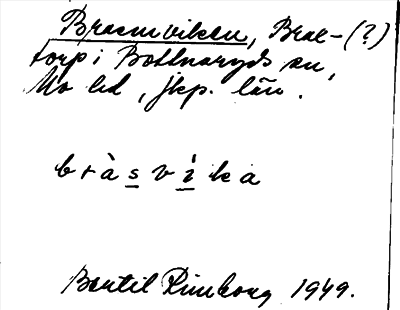 Brasmviken, Brae-(?)
torp i Bottnaryds sn,
Mo hd, jkp. län.
bràsvika
Bertil Rimborg 1949.